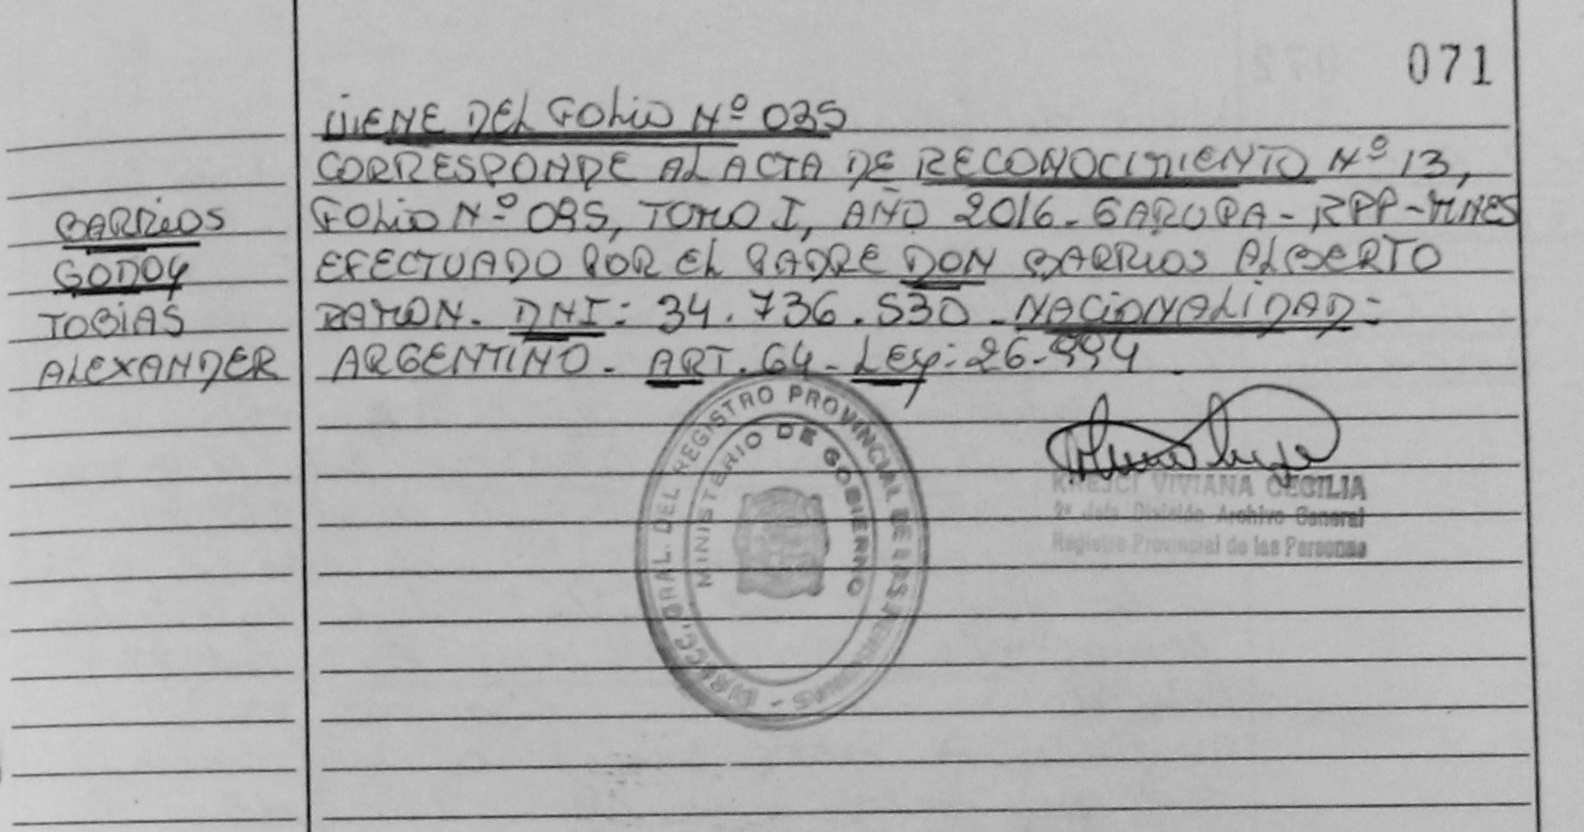 071
VIENE DEL FOLIO Nº 035
CORRESPONDE AL ACTA DE RECONOCIMIENTO Nº 13,
FOLIO Nº 095, TOMO I, AÑO 2016 - GARUPA - RPP - MNES
EFECTUADO POR EL PADRE DON BARRIOS ALBERTO
RAMON. DNI: 34.736.530. NACIONALIDAD:
ARGENTINO. ART. 64 - LEY: 26.994.
BARRIOS
GODOY
TOBIAS
ALEXANDER
DIRECC. GRAL. DEL REGISTRO PROVINCIAL DE LAS PERSONAS -
MINISTERIO DE GOBIERNO
KREJCI VIVIANA CECILIA
2º Jefe División Archivo General
Registro Provincial de las Personas